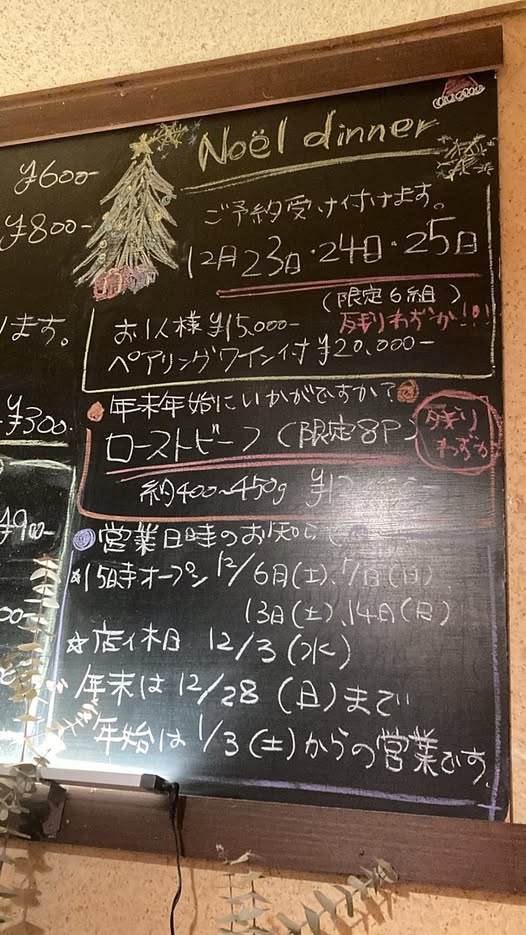 ¥600-
¥800-
ります。
¥300-
Noël dinner
ご予約受け付けます。
12月23日・24日・25日
(限定6組)
お1人様 ¥15,000- 残りわずか!!!
ペアリングワイン付 ¥20,000-
年末年始にいかがですか?
ローストビーフ (限定8P) 残り
わずか
約400~450g
営業日時のお知らせ
☆15時オープン 12/6日(土)、7日(日)
13日(土)、14日(日)
☆店休日 12/3(水)
年末は12/28(日)まで
年始は1/3(土)からの営業です。